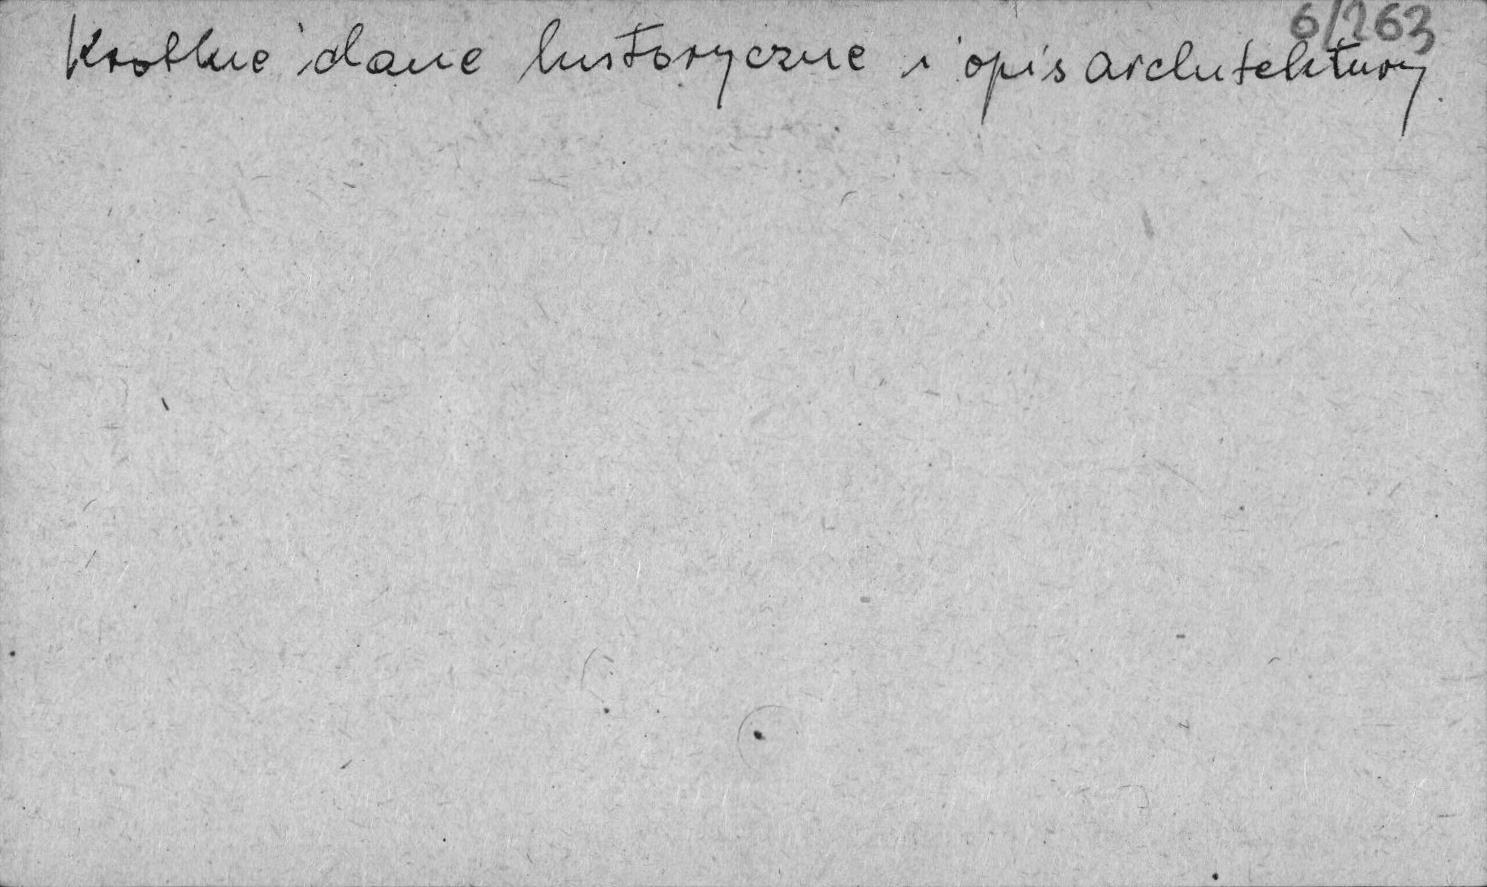 6/263
Krótkie dane historyczne i opis architektury.